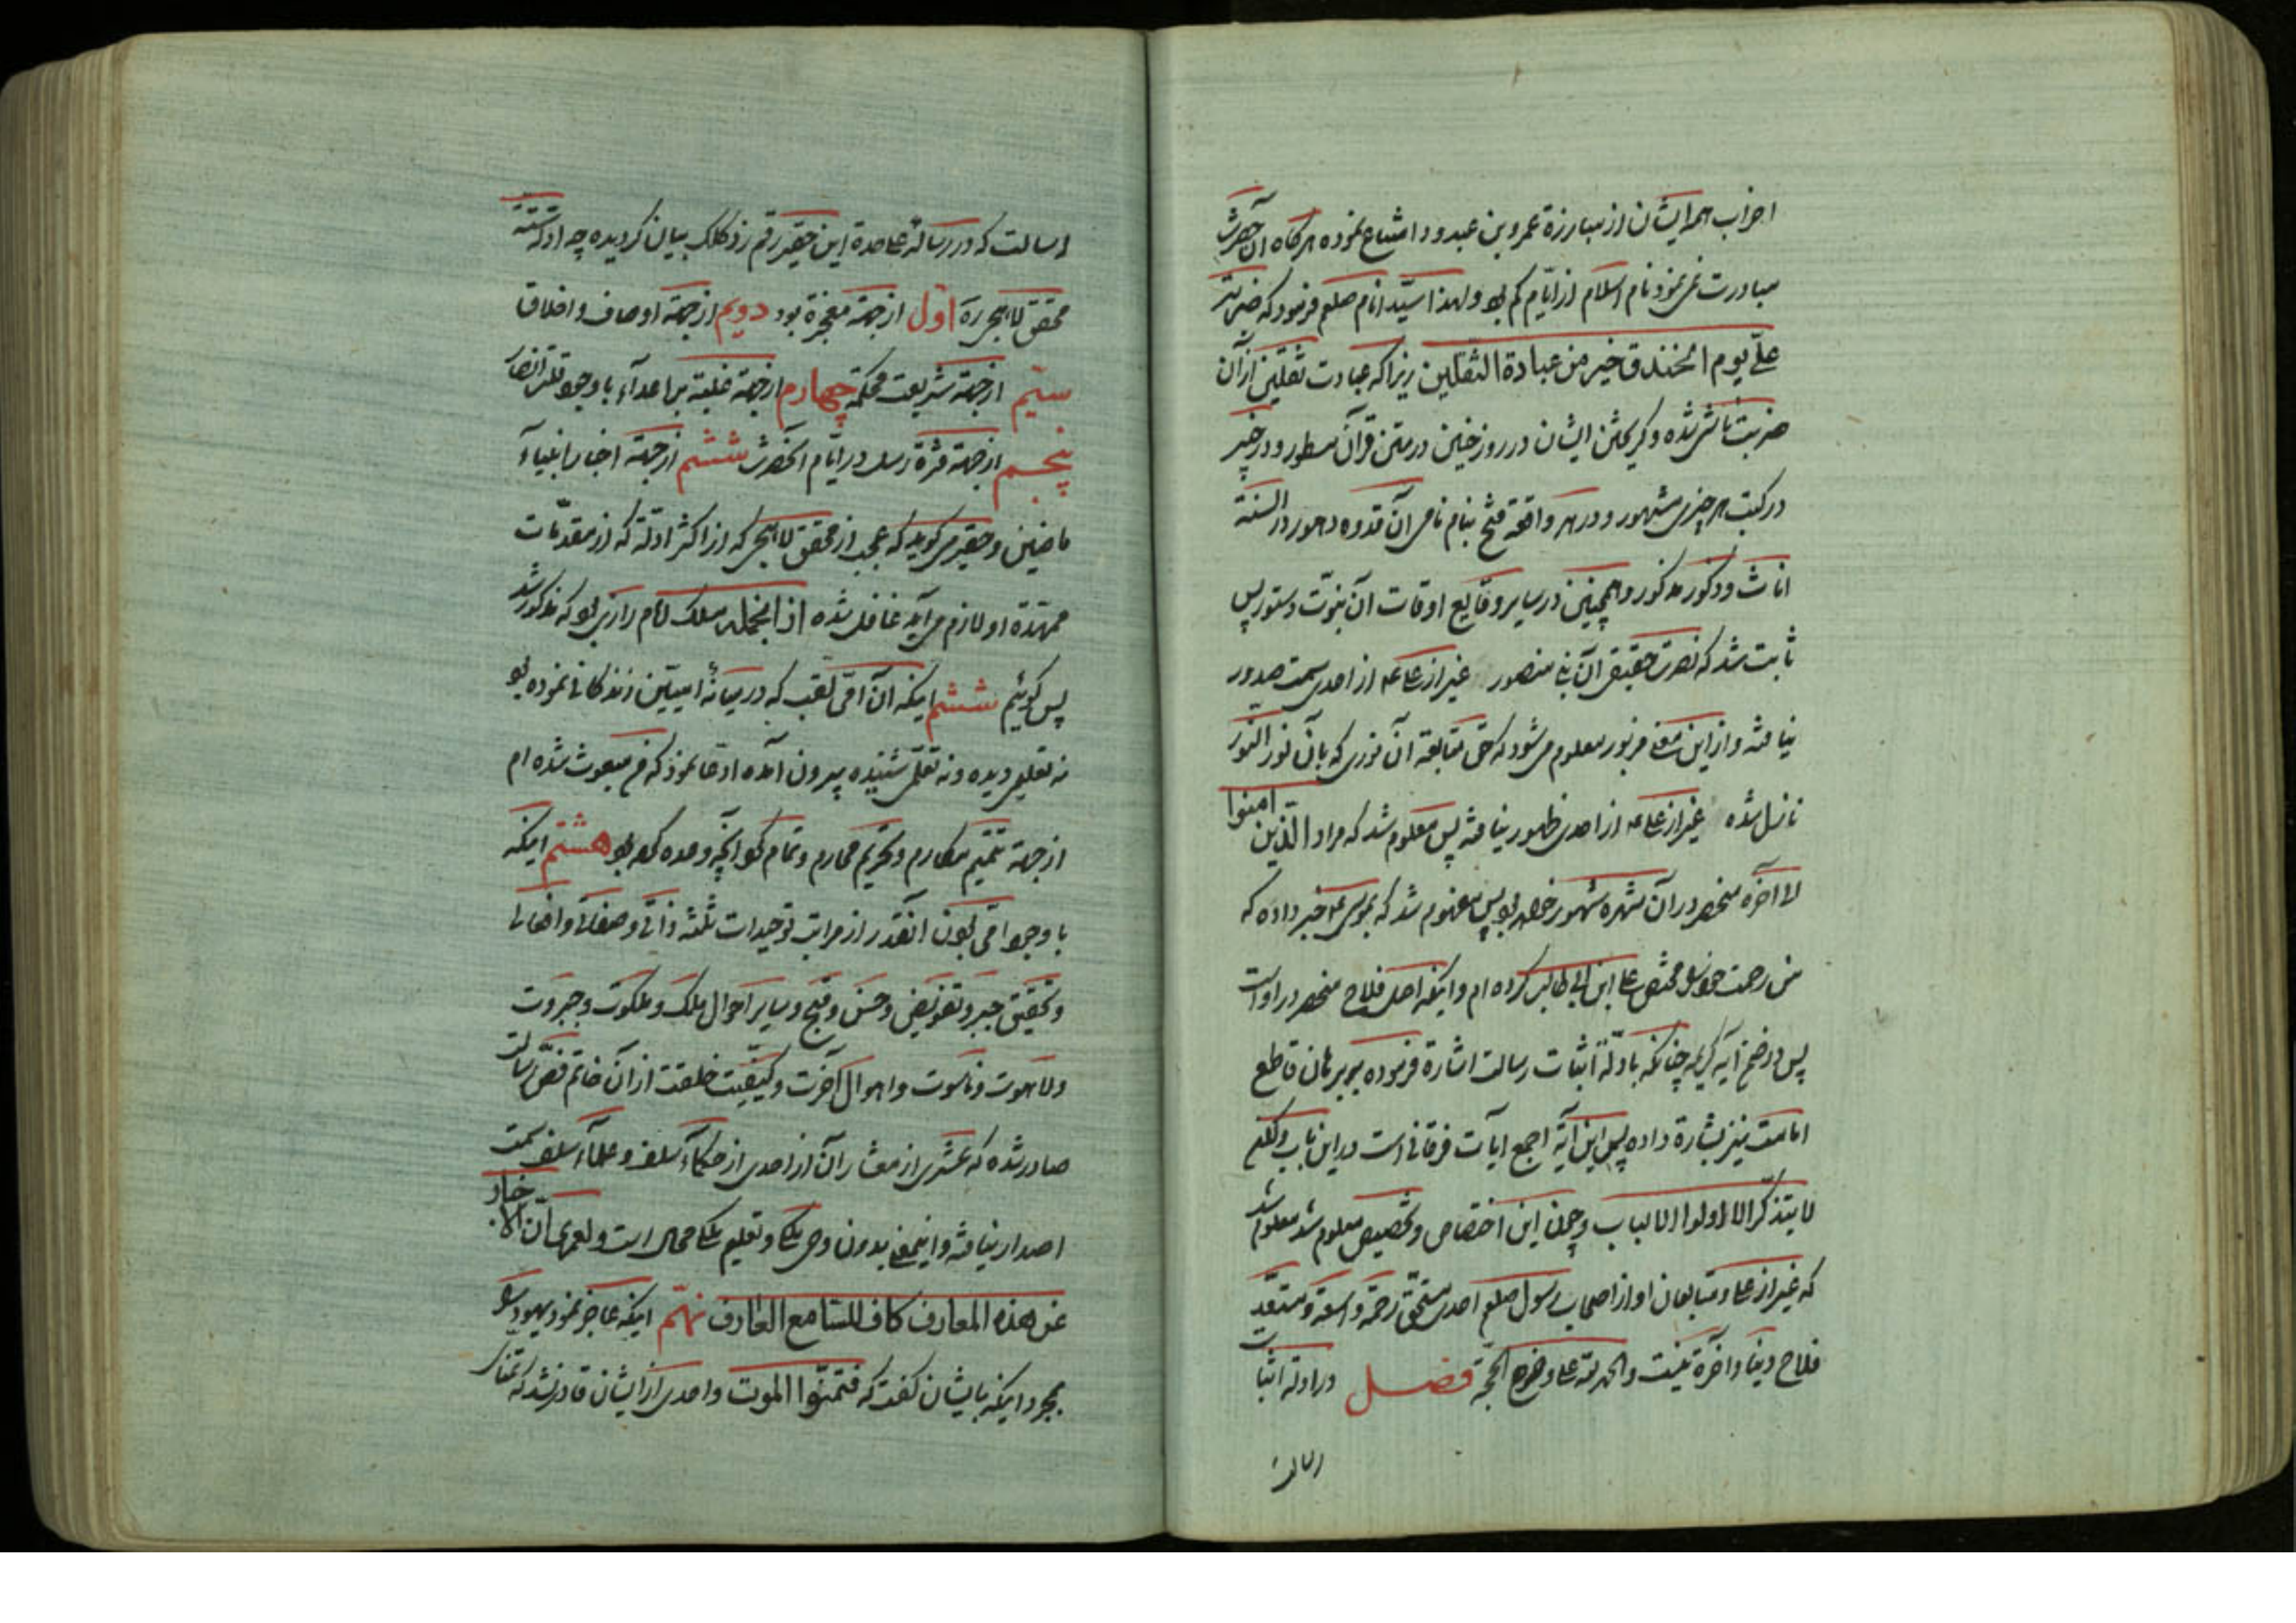 احزاب همه ایشان از مبارزة عمرو بن عبدود امتناع نموده هرگاه آن حضرت
مبادرت نمی نمود نام اسلام از ایّام کم بود ولهذا سیّد انام صلعم فرمود که ضربت
علیّ یوم الخندق خیر من عبادة الثقلین زیرا که عبادت ثقلین از آن
ضربت ناشی شده و گریختن ایشان در روز حنین در متن قرآن مسطور و در خیبر
در کتب هر چیزی مشهور و در هر واقعه فتح بنام نامی آن قدوه دهور در السنته
اناث و ذکور مذکور و همچنین در سایر وقایع اوقات آن نبوّت دستور پس
ثابت شد که نصرت حقیقی آن نبی منصور غیر از علی ع از احدی سمت صدور
نیافته و از این معنی مزبور معلوم می شود که حق متابعة آن نوری که بان نور النور
نازل شده غیر از علی ع از احدی ظهور نیافته پس معلوم شد که مراد الذین امنوا
لا آخره منحصر در آن شهره شهور خواهد بود پس مفهوم شد که بموسی ع خبر داده که
من رحمت خود را مختص علی ابن ابی طالب کرده ام و اینکه اهل فلاح منحصر در او است
پس در ضمن آیه کریمه چنانکه بادلّة اثبات رسالت اشارة فرموده ببرهان قاطع
امامت نیز بشارة داده پس این آیة اجمع ایات فرقانی است در این باب ولکن
لا یتذکّر الا اولوا الالباب و چون این اختصاص و تخصیص معلوم شد معلوم شد
که غیر از علی و متابعان او از اصحاب رسول صلعم احدی مستحق رحمة واسعة و مستعد
فلاح دنیا و آخرة نیست والحمد لله علی وضوح الحجّة فصل در ادلة اثبات
رسالت
رسالت که در رساله علیحدة این حقیر رقم زد کلک بیان گردیده چه ادله ستّة
محقق لاهیجی ره اوّل از جهة معجزة بود دویم از جهة اوصاف و اخلاق
سیّم از جهة شریعت محکمة چهارم از جهة غلبة بر اعدآء با وجود قلت انصار
پنجم از جهة فترة رسل در ایّام آنحضرت ششم از جهة اخبار انبیآء
ماضین و حقیر می گوید که عجب از محقق لاهیجی که از اکثر ادلّة که از مقدّمات
ممهّدة او لازم می آید غافل شده از انجمله مسلک امام رازی بود که مذکور شد
پس گوئیم ششم اینکه آن امّی لقب که در میانهٔ امیّین زندگانی نموده بود
نه تعلیمی دیده و نه تعلّمی شنیده بیرون آمده ادّعا نموذ که من مبعوث شده ام
از جهة تتمیم مکارم و تحریم محارم و تمام کرد آنچه وعده کرده بود هشتم اینکه
با وجود امّی بودن آنقدر از مراتب توحیدات ثلثه ذاتی و صفاتی و افعالی
و تحقیق جبر و تفویض و حسن و قبح و سایر احوال ملک و ملکوت و جبروت
و لاهوت و ناسوت و اهوال آخرت و کیفیّت خلقت از آن خاتم فصّ رسالت
صادر شده که عشری از معشار آن از احدی از حکمآء سلف و علمآء سلف سمت
اصدار نیافته و اینمعنی بدون وحی ملکی و تعلیم ملکی محال است و لعمری ان الاخبار
عن هذه المعارف کاف للسّامع العارف نهم اینکه عاجز نمود یهود را
بمجرد اینکه بایشان گفت که فتمنّوا الموت و احدی از ایشان قادر نشد که تمنای